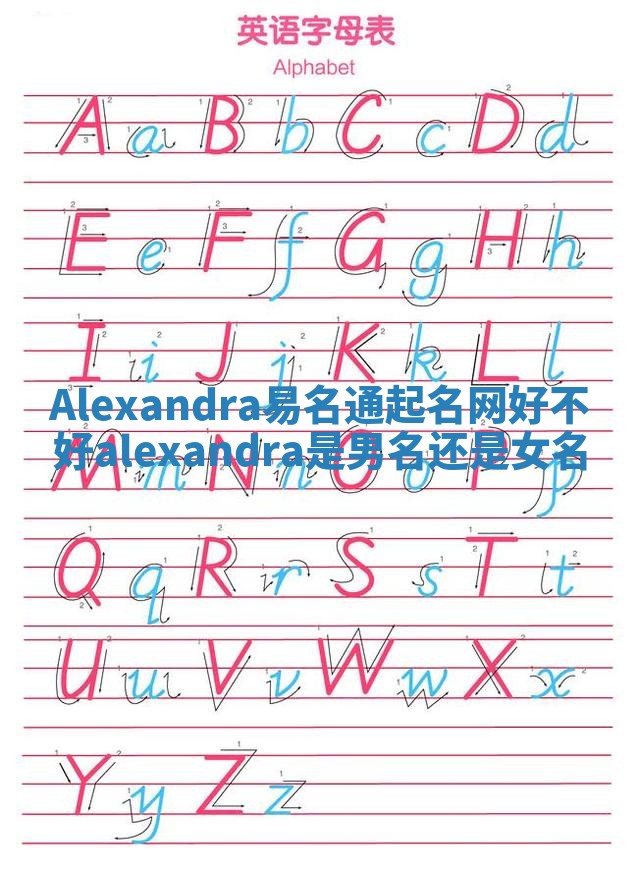 英语字母表
Alphabet
A a B b C c D d
E e F f G g H h
I i J j K k L l
Alexandra易名通起名网好不
好alexandra是男名还是女名
M m N n O o P p
Q q R r S s T t
U u V v W w X x
Y y Z z